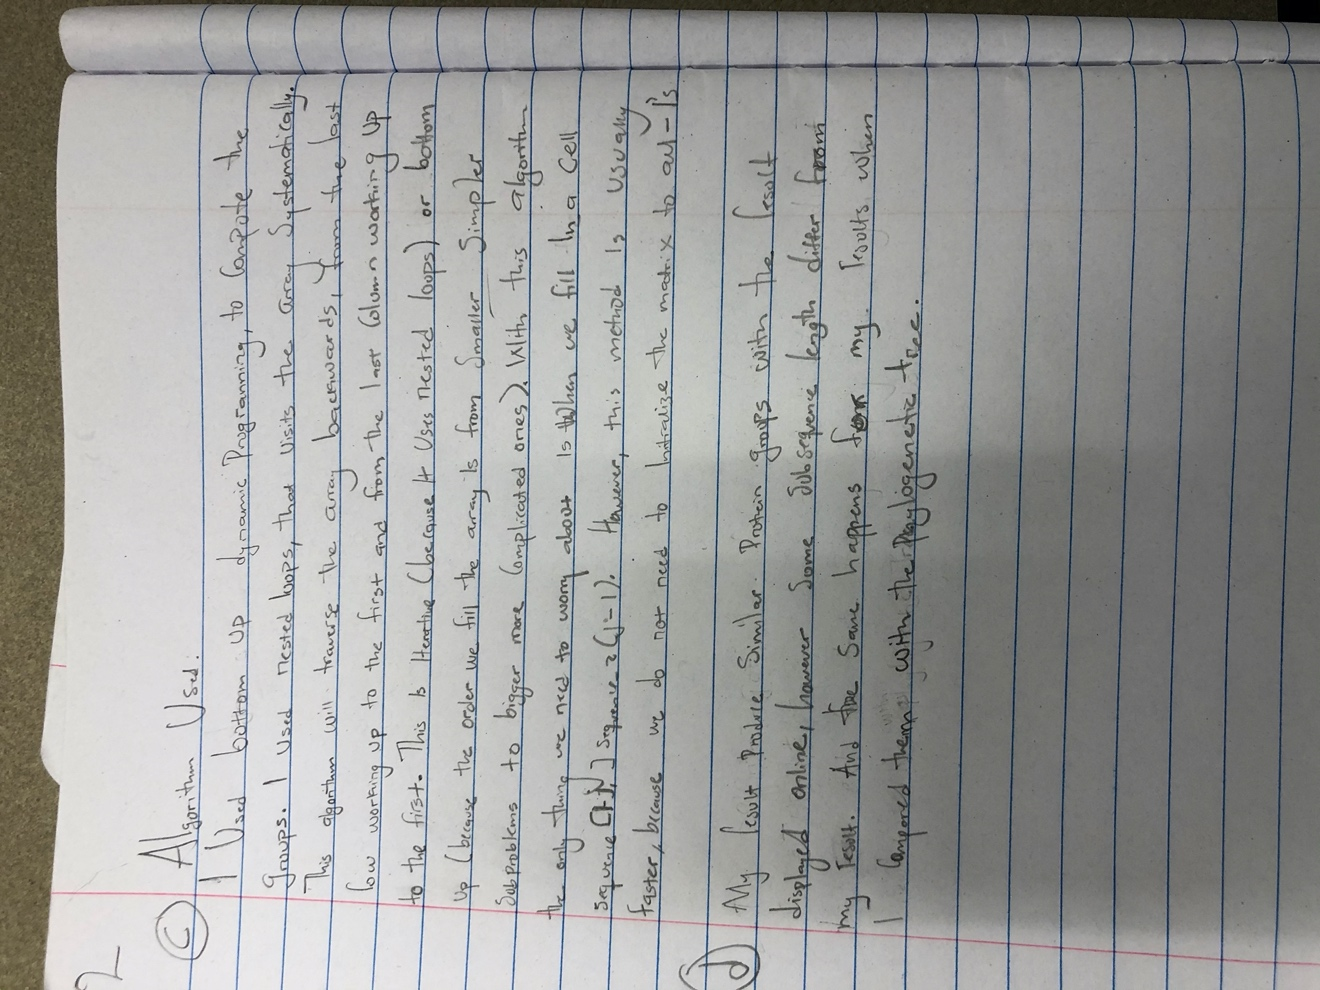 2
(c) Algorithm Used.
I Used bottom up dynamic Programming, to Compute the
groups. I Used nested loops, that visits the array Systematically.
This algorithm will traverse the array backwards, from the last
row working up to the first and from the last Column working Up
to the first. This is Iterative (because It Uses nested loops) or bottom
Up (because the order we fill the array is from Smaller Simpler
Subproblems to bigger more Complicated ones). With this algorithm
the only thing we need to worry about is when we fill In a Cell
Sequence 2 (j-1). However, this method is usually
faster, because we do not need to Initialize the matrix to all -1's.
(d) My result Produce Similar Protein groups with the result
displayed online, however Some Subsequence length differ from
my result. And the Same happens for my results when
I Compared them with the Phylogenetic tree.